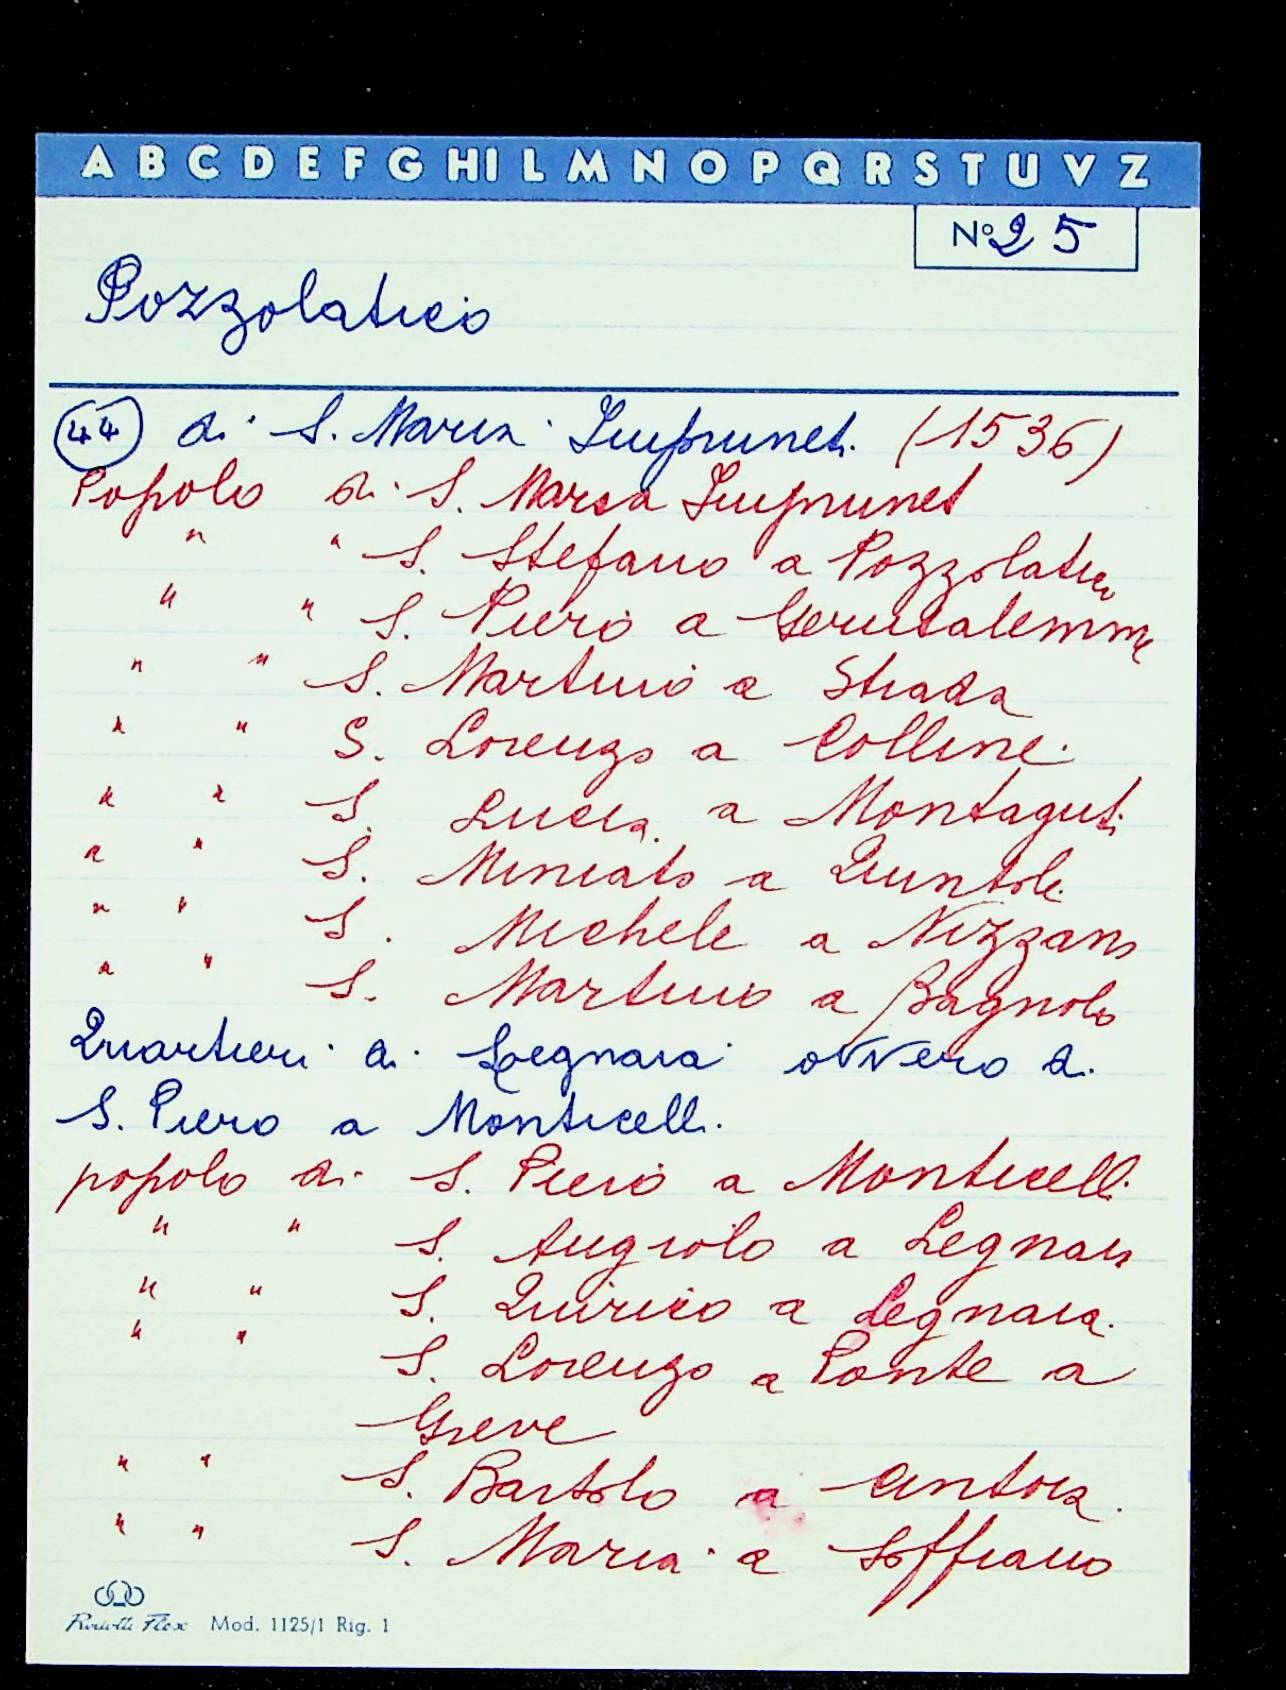 A B C D E F G H I L M N O P Q R S T U V Z
N° 25
Pozzolatico
44 di S. Maria Impruneta (1536)
Popolo di S. Maria Impruneta
" " S. Stefano a Pozzolatico
" " S. Piero a Gerusalemme
" " S. Martino a Strada
" " S. Lorenzo a Colline
" " S. Lucia a Montaguti
" " S. Miniato a Quintole
" " S. Michele a Nizzano
" " S. Martino a Bagnolo
Quartieri di Legnaia ovvero di
S. Piero a Monticelli
popolo di S. Piero a Monticelli
" " S. Angiolo a Legnaia
" " S. Quirico a Legnaia
" " S. Lorenzo a Ponte a
Greve
" " S. Bartolo a Cintoia
" " S. Maria a Soffiano
Mod. 1125/1 Rig. 1